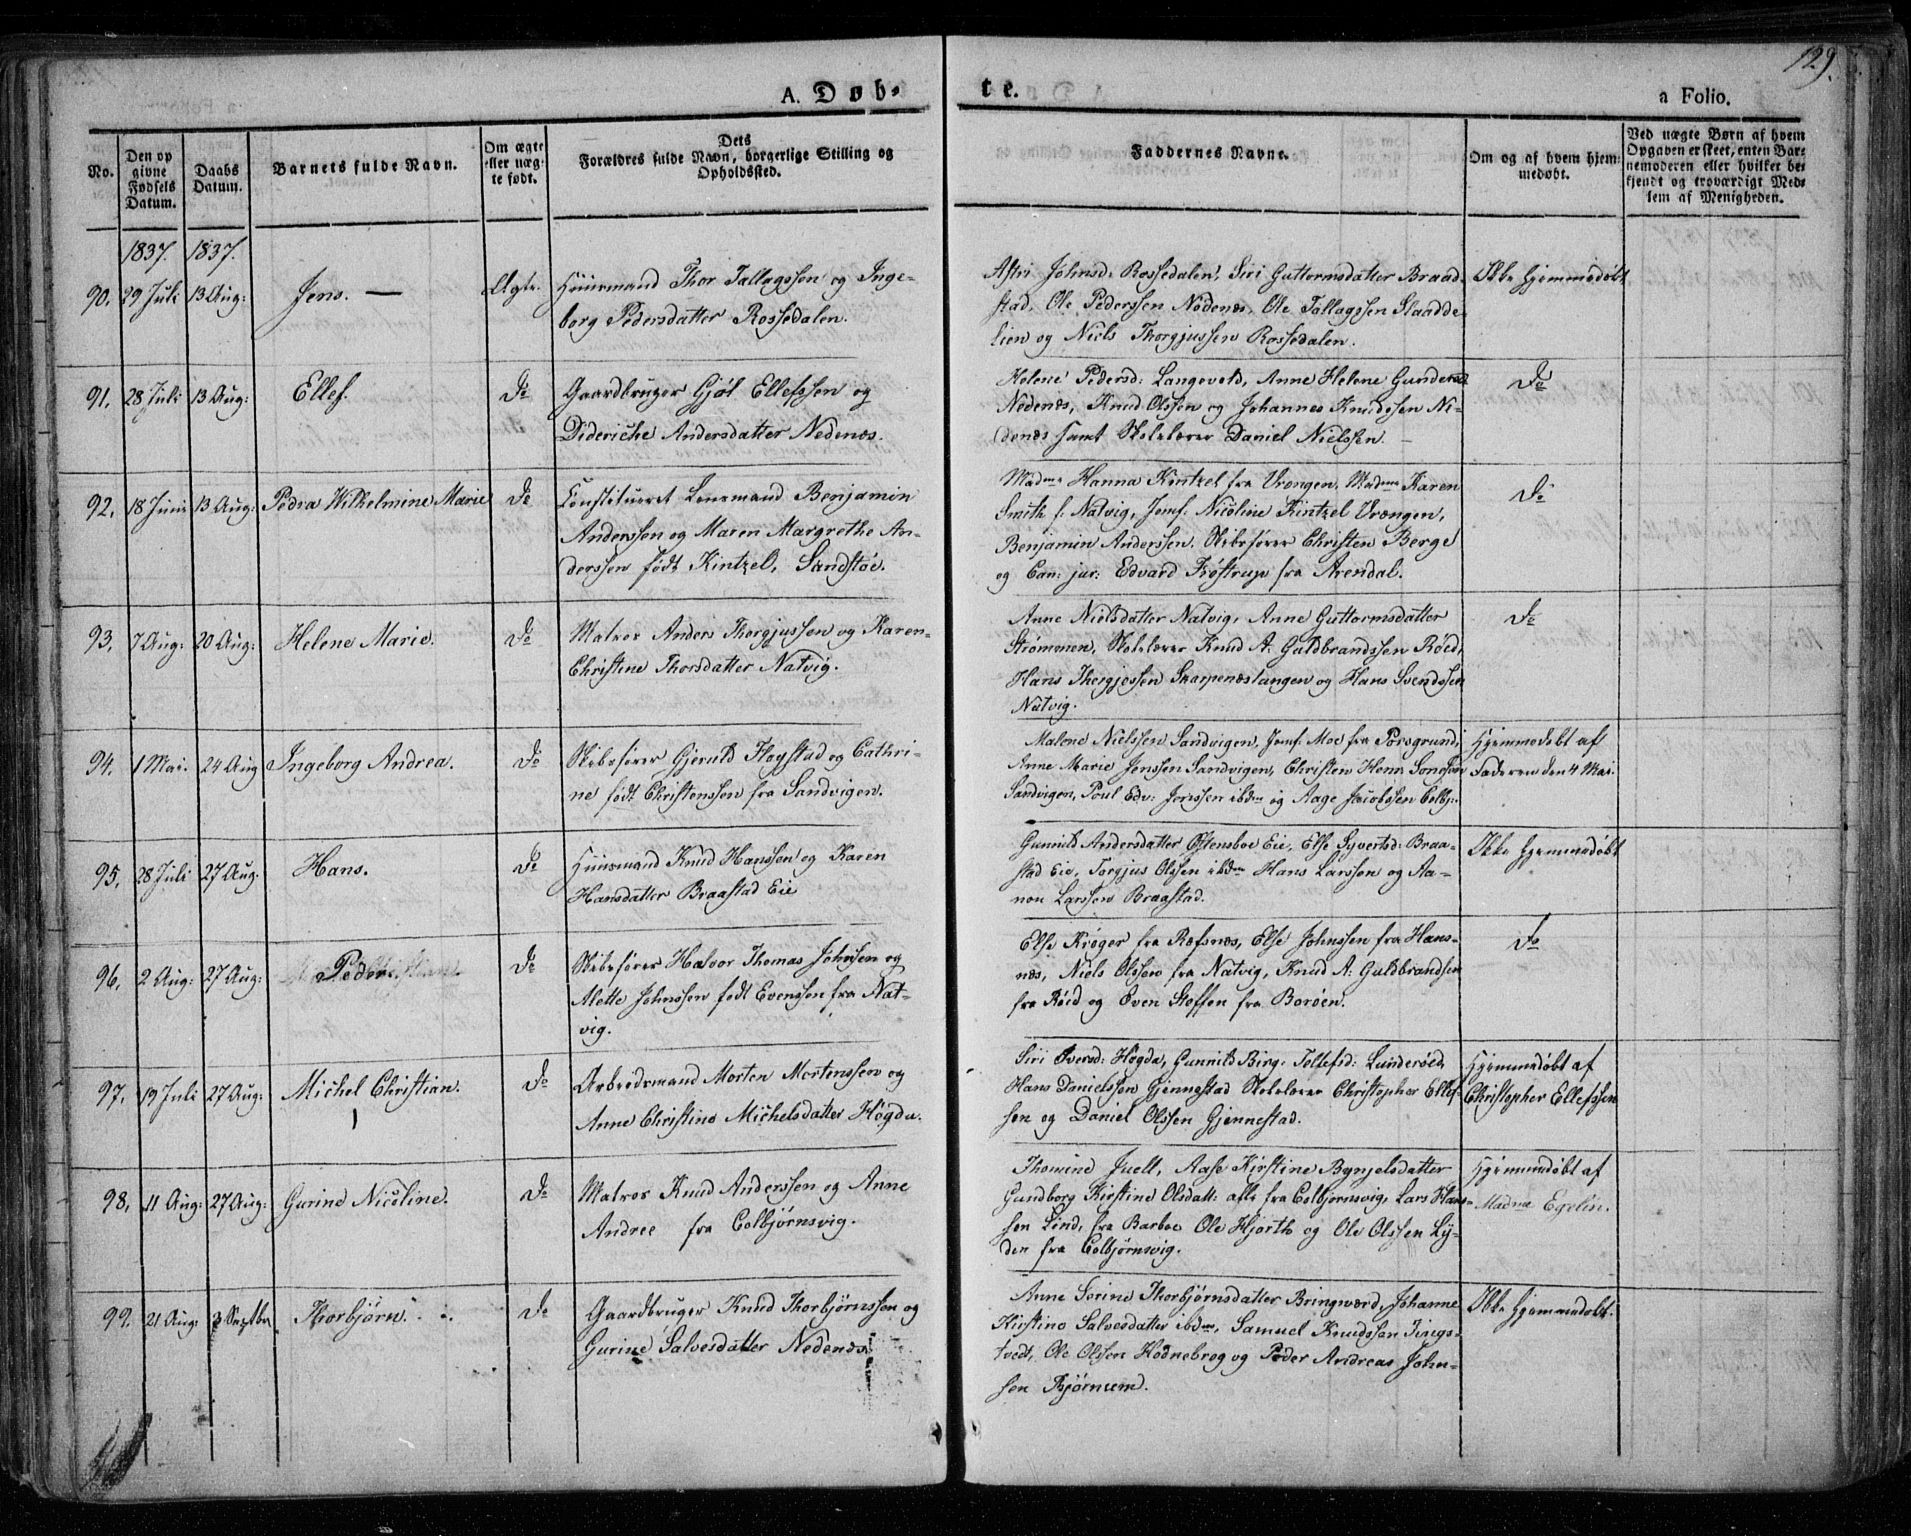 129.
A. Døb-
te.
a Folio.
No.
Den op
givne
Fødsels
Datum.
Daabs
Datum.
Barnets fulde Navn.
Om ægte
eller uæg-
te født.
Dets
Forældres fulde Navn, borgerlige Stilling og
Opholdssted.
Faddernes Navne.
Om og af hvem hjem-
medøbt.
Ved uægte Børn af hvem
Opgaven er skeet, enten Bar-
nemoderen eller hvilket be-
kjendt og troværdigt Med-
lem af Menigheden.
1837. 1837.
90. 29 Juli 13 Aug: Jens. — Ægte. Huusmand Thor Tallagssen og Inge-
borg Pedersdatter Rossedalen.
Astri Johnsd: Rossedalen, Siri Guttormsdatter Braad-
stad, Ole Pederssen Nedenæs, Ole Tallagssen Slaadde-
lien og Niels Thorgjussen Rossedalen.
Ikke hjemmedøbt
91. 28 Juli 13 Aug: Ellef. Do Gaardbruger Gjøl Ellefssen og
Dideriche Andersdatter Nedenæs.
Helene Pedersd: Langevold, Anne Helene Gundersd
Nedenæs, Knud Olssen og Johannes Knudssen Ne-
denæs samt Skolelærer Daniel Nielssen. —
Do
92. 18 Juni 13 Aug: Pedra Wilhelmine Marie Do Constitueret Lensmand Benjamin
Anderssen og Maren Margrethe An-
derssen født Kintzel, Sandstøe.
Madme Hanna Kintzel fra Vrengen, Madme Karen
Smith f: Natvig, Jomf: Nicoline Kintzel Vrængen,
Benjamin Anderssen, Skibsfører Christen Berge
og Can: jur: Edvard Trøstrup fra Arendal.
Do
93. 7 Aug: 20 Aug: Helene Marie. Do Matros Anders Thorgjussen og Karen-
Christine Thorsdatter Natvig.
Anne Nielsdatter Natvig, Anne Guttormsdatter
Strømmen, Skolelærer Knud A: Guldbrandssen Røed,
Hans Thorgjessen Skarpenæstangen og Hans Svendssen
Natvig.
Do
94. 1 Mai. 24 Aug Ingeborg Andrea. Do Skibsfører Gjeruld Fløystad og Cathri-
ne født Christenssen fra Sandvigen.
Malene Nielssen Sandvigen, Jomf: Moe fra Porsgrund,
Anne Marie Jenssen Sandvigen, Christen Henr:
Sandvigen, Poul Edv: Jenssen ibdm og Aage Jacobssen Colbj:
Hjemmedøbt af
Faderen den 4 Mai.
95. 28 Juli 27 Aug: Hans. Do Huusmand Knud Hanssen og Karen
Hansdatter Braastad Eie
Gunnild Andersdatter Østensboe Eie, Else Syvertsd: Braa-
stad Eie, Torgjus Olssen ibdm Hans Larssen og Aa-
non Larssen Braastad.
Ikke hjemmedøbt
96. 2 Aug: 27 Aug: Peder Do Skibsfører Halvor Thomas Johnsen og
Mette Johnssen født Evenssen fra Nat-
vig.
Else Krøger fra Refsnes, Else Johnssen fra Hans-
næs, Niels Olssen fra Natvig, Knud A: Guldbrandsen
fra Røed og Even Steffen fra Borøen.
Do
97. 19 Juli 27 Aug: Michel Christian. Do Arbeidsmand Morten Mortenssen og
Anne Christine Michelsdatter Høgda.
Siri Iversd: Høgda, Gunnild Birg: Tollefsd: Lunderød,
Hans Danielssen Gjennestad Skolelærer Christopher Ellef-
sen og Daniel Olssen Gjennestad.
Hjemmedøbt af
Christopher Ellefssen
98. 11 Aug: 27 Aug: Gurine Nicoline. Do Matros Knud Anderssen og Anne
Andree fra Colbjørnsvig.
Thomine Juell, Aase Kirstine Bynjelsdatter
Gundborg Kirstine Olsdatt: alle fra Colbjørnsvig, Lars Hans-
sen Lind, fra Barboe Ole Hjorth og Ole Olssen Ly-
den fra Colbjørnsvig.
Hjemmedøbt af
Madme Egelin.
99. 21 Aug: 3 Septbr Thorbjørn. Do Gaardbruger Knud Thorbjørnssen og
Gurine Salvesdatter Nedenæs.
Anne Sorine Thorbjørnsdatter Bringsværd, Johanne
Kirstine Salvesdatter ibdm, Samuel Knudssen Tings-
tvedt, Ole Olssen Hodnebrog og Peder Andreas John-
sen Bjørnum.
Ikke hjemmedøbt.